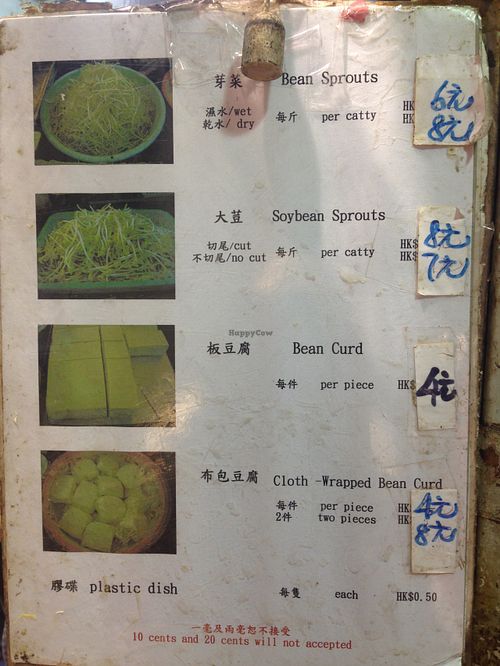 芽菜 Bean Sprouts
濕水/wet 每斤 per catty HK 6元
乾水/ dry HK 8元
大荳 Soybean Sprouts
切尾/cut HK$ 8元
不切尾/no cut 每斤 per catty HK$ 7元
HappyCow
板豆腐 Bean Curd
每件 per piece HK$ 4元
布包豆腐 Cloth -Wrapped Bean Curd
每件 per piece HK 4元
2件 two pieces HK 8元
膠碟 plastic dish 每隻 each HK$0.50
一毫及兩毫恕不接受
10 cents and 20 cents will not accepted